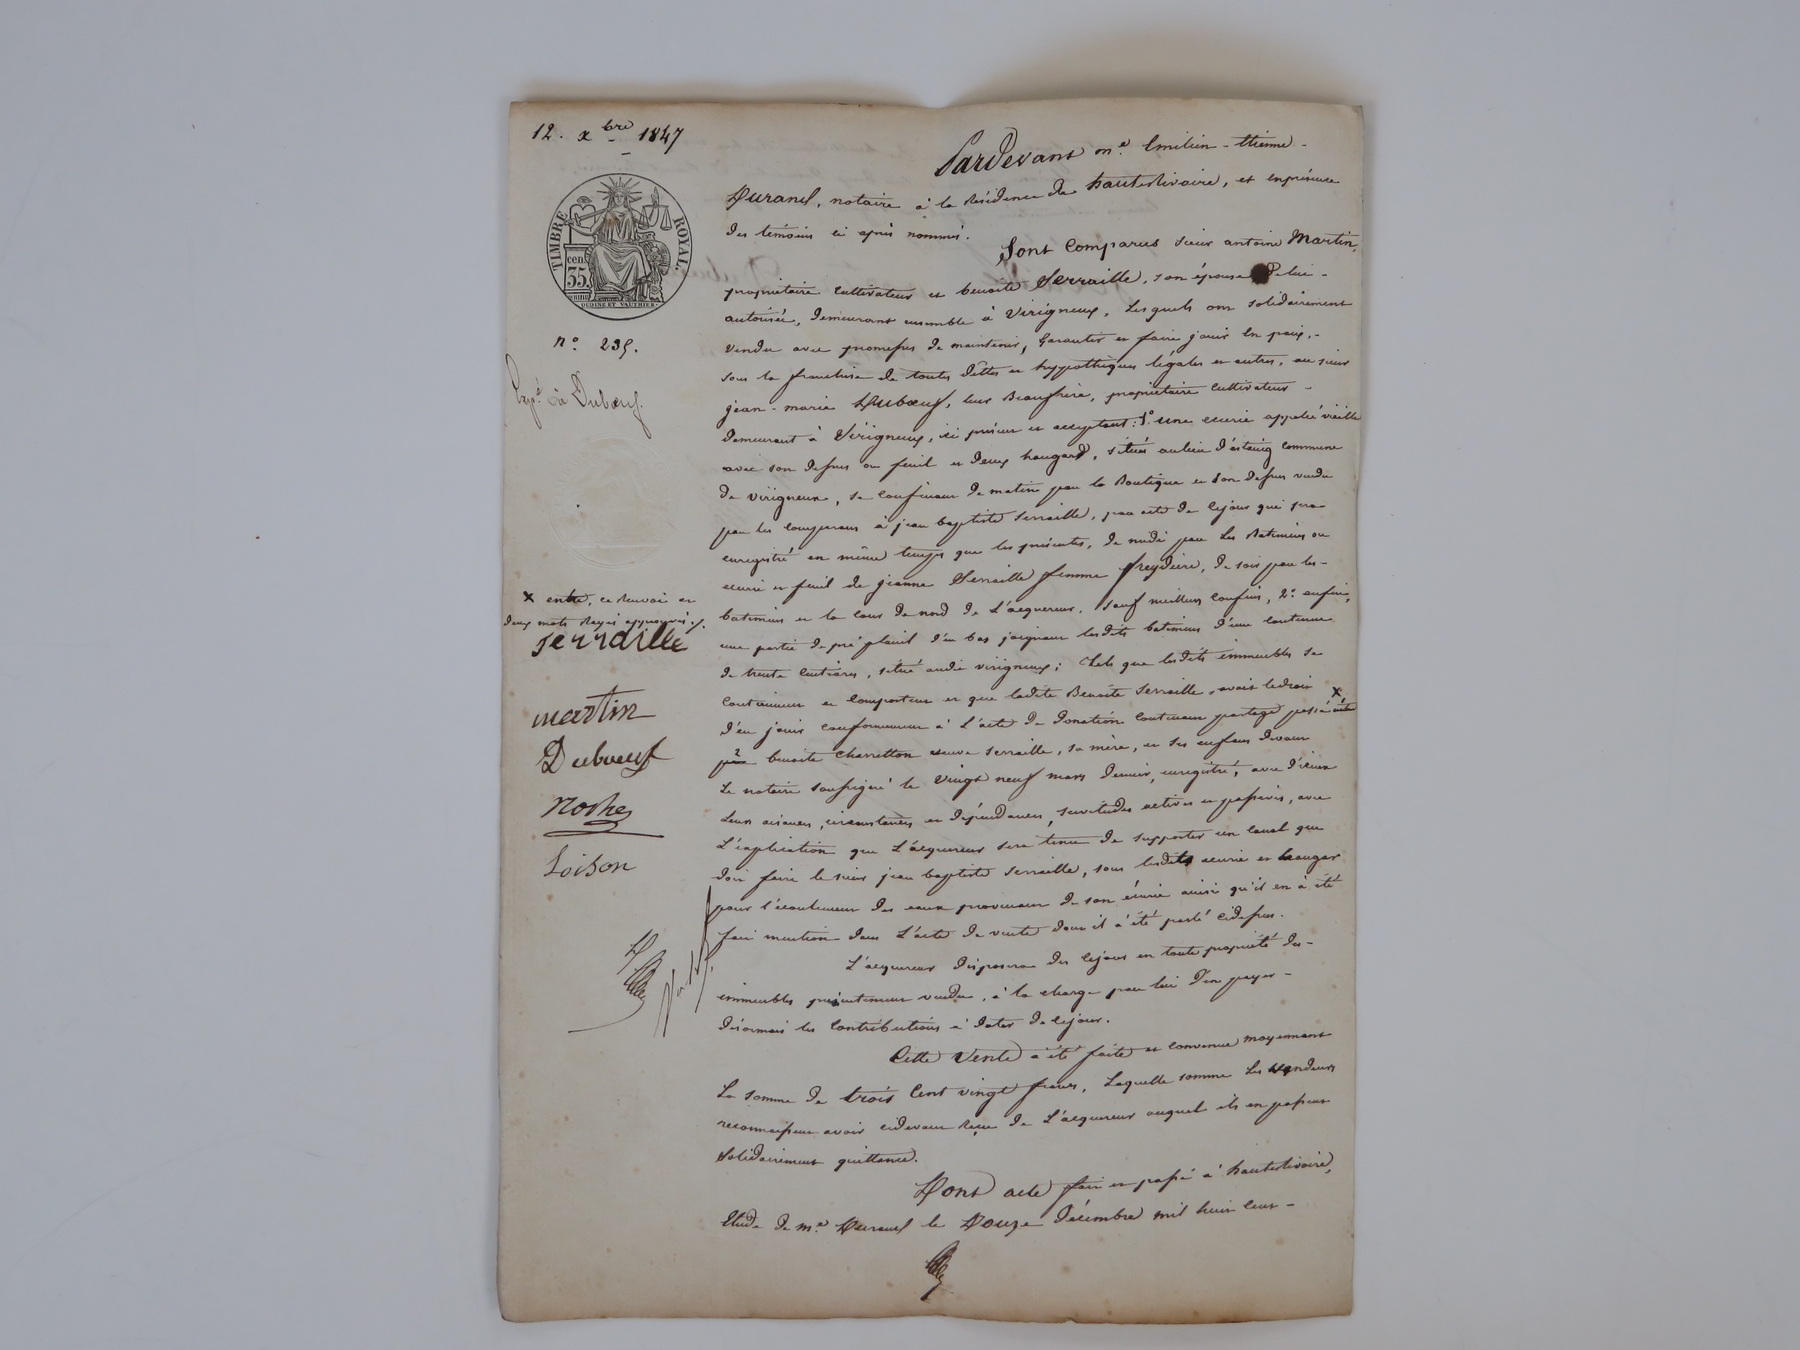 12. xbre 1847
TIMBRE ROYAL.
35 cen
OUDINE ET VAUTHIER
n.° 235.
Expé. à Duboeuf.
x entre, ce renvoi et
deux mots rayés approuvés ./.
serraille
martin
Duboeuf
Loison
Pardevant me. Emilien - Etienne -
Durand, notaire à la Résidence de hauterivoire, et en présence
des témoins ci après nommés.
Sont Comparus sieur antoine Martin,
propriétaire cultivateur et benoite Serraille, son épouse de lui -
autorisée, demeurant ensemble à Virigneux, Lesquels ont solidairement
Vendu avec promesses de maintenir, Garantir et faire jouir En paix, -
sous la franchise de toutes dêttes et hyppothèques légales et autres, au sieur
jean - marie Duboeuf, leur Beaufrère, propriétaire Cultivateur -
demeurant à Virigneux, ici présent et acceptant: 1.° une écurie appelée vieille
avec son dessus ou feuil et deux hangard, situés au lieu d'estaing commune
de Virigneux, se confinant de matin par la Boutique et son dessus vendu
par les comparans à jean baptiste serraille, par acte de cejour qui sera
enregistré en même temps que les présentes, de midi par Les Batimens ou
écurie et feuil de jeanne Serraille femme freydière, de soir par les -
batimens et la cour de nord de L'acquereur. sauf meilleurs confins, 2.° enfin,
une partie de pré plaisil d'en bas joignant lesdits batimens d'une contenue
de trente centiares, situé audit virigneux; Tels que lesdits immeubles se
Contiennent et comportent et que ladite Benoite Serraille, avait ledroit
d'en jouir conformément à L'acte de donation contenant partage passé entre x
par benoite Charretton veuve serraille, sa mère, et ses enfans devant
Le notaire soussigné le vingt neuf mars dernier, enregistré, avec d'iceux
Leurs aisances, circonstances et dépendances, servitudes actives et passives, avec
L'explication que L'acquereur sera tenu de supporter un canal que
doit faire le sieur jean baptiste serraille, sous lesdits écurie et hangar
pour l'écoulement des eaux provenant de son écurie ainsi qu'il en à été
fait mention dans L'acte de vente dont il à été parlé cidessus.
L'acquereur disposera dès cejour en toute propriété des -
immeubles présentement vendus, à la charge par lui D'en payer -
désormais les Contributions à dater de cejour.
Cette Vente à été faite et convenue moyennant
La somme de trois Cent vingt francs, Laquelle somme Les vendeurs
reconnaissent avoir cidevant Reçue de L'acquereur auquel ils en passent
Solidairement quittance.
Dont acte fait et passé à hauterivoire,
Etude de me. Durand le Douze Décembre mil huit cent -